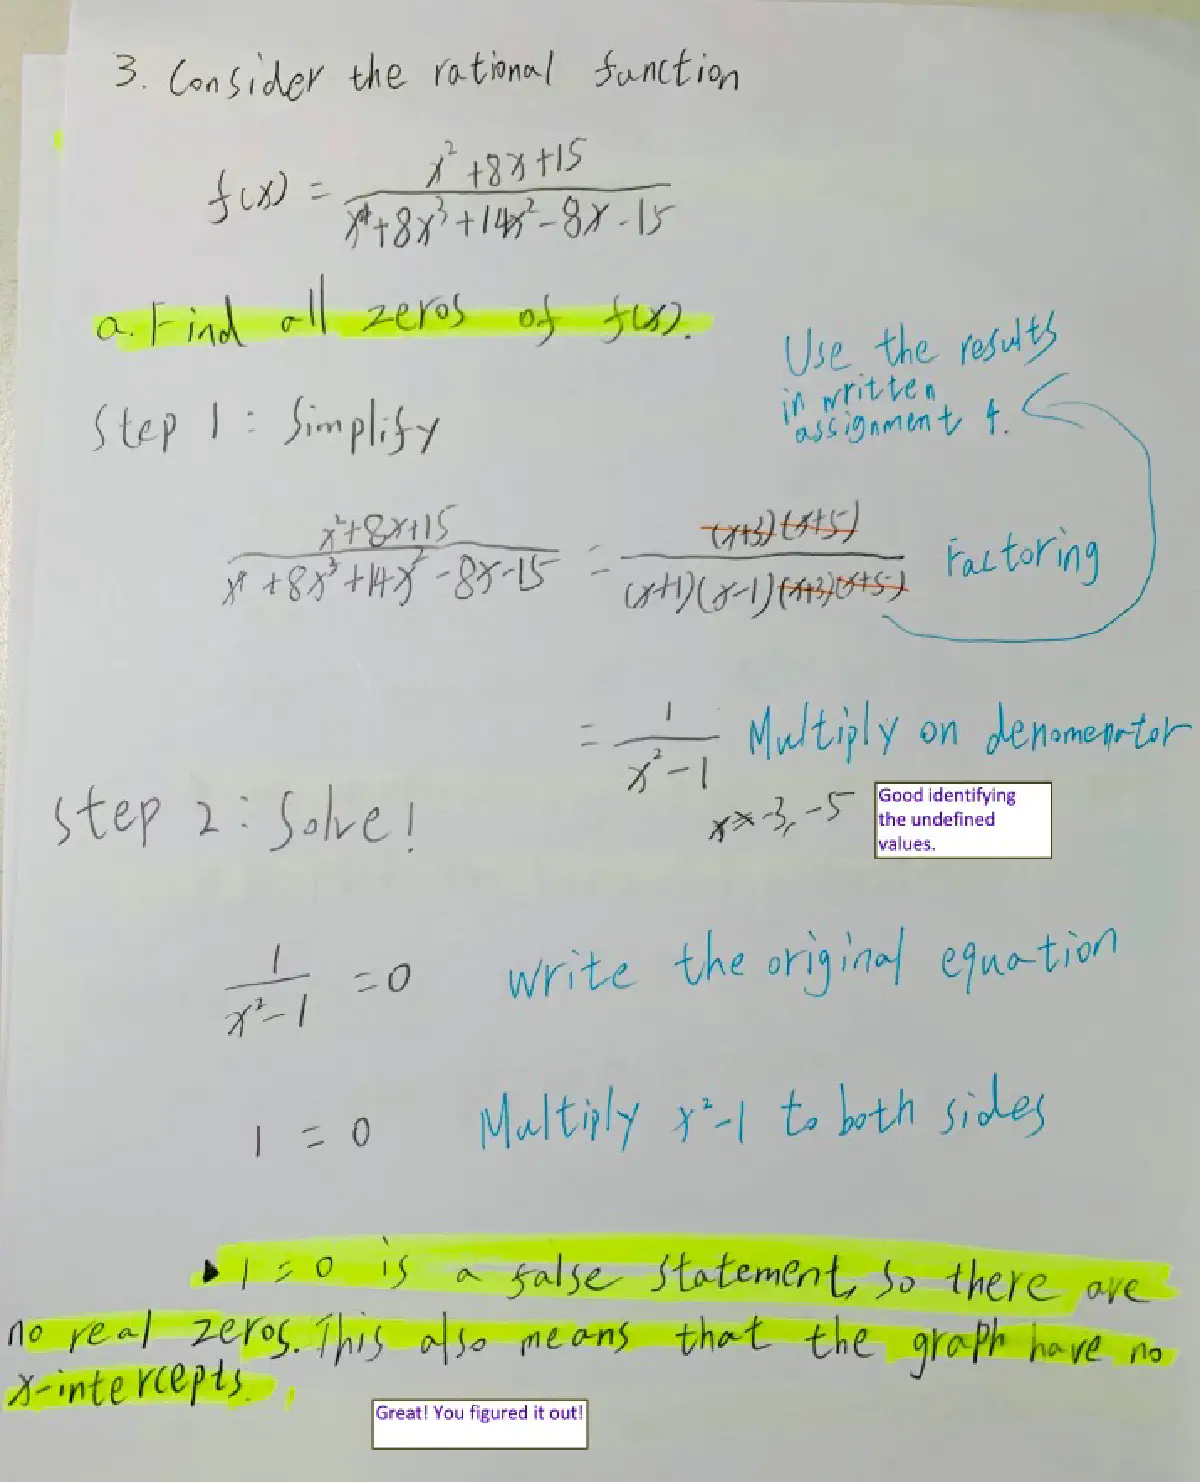 3. Consider the rational function
f(x) = (x²+8x+15)/(x⁴+8x³+14x²-8x-15)
a. Find all zeros of f(x).
Use the results
in written
assignment 4.
Step 1: Simplify
(x²+8x+15)/(x⁴+8x³+14x²-8x-15) = ((x+3)(x+5))/((x+1)(x-1)(x+3)(x+5)) Factoring
= 1/(x²-1) Multiply on denomenator
x≠-3,-5
Good identifying
the undefined
values.
Step 2: Solve!
1/(x²-1) =0 Write the original equation
1 = 0 Multiply x²-1 to both sides
▶ 1=0 is a false statement, so there are
no real zeros. This also means that the graph have no
x-intercepts.
Great! You figured it out!